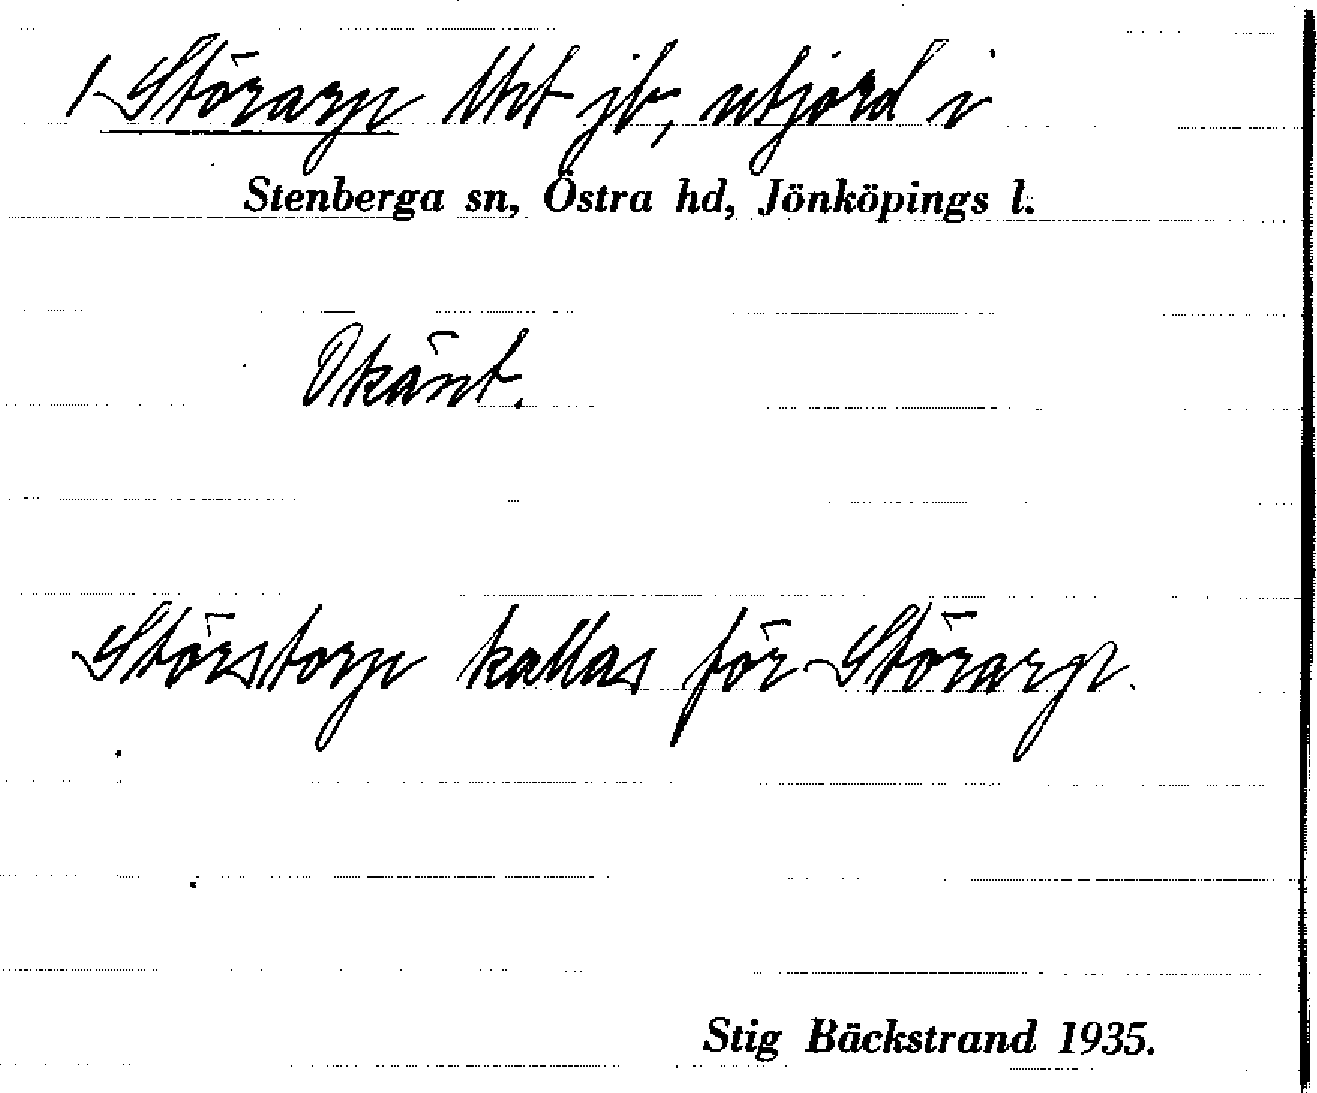 1 Störarp Utr jb, utjord i
Stenberga sn, Östra hd, Jönköpings l.
Okänt.
Störstorp kallas för Störarp.
Stig Bäckstrand 1935.